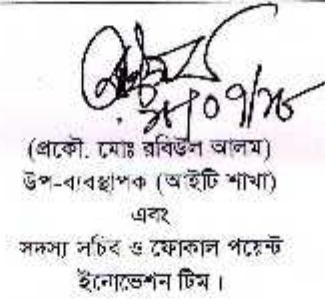 (প্রকৌ. মোঃ রবিউল আলম)
উপ-ব্যবস্থাপক (আইটি শাখা)
এবং
সদস্য সচিব ও ফোকাল পয়েন্ট
ইনোভেশন টিম।